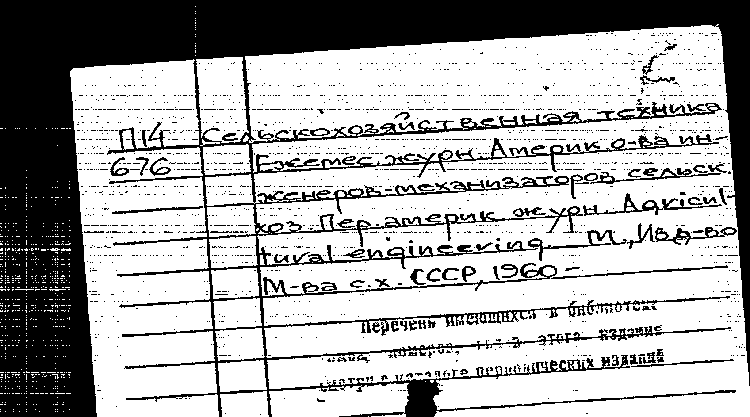 П14 Сельскохозяйственная техника
676 Ежемес. журн. Америк. о-ва ин-
женеров-механизаторов сельск.
хоз. Пер. америк. журн. Agricul-
tural engineering. М., Изд-во
М-ва с.х. СССР, 1960-
Перечень имеющихся в библиотеке
номеров, этого издания
смотри в каталоге периодических изданий